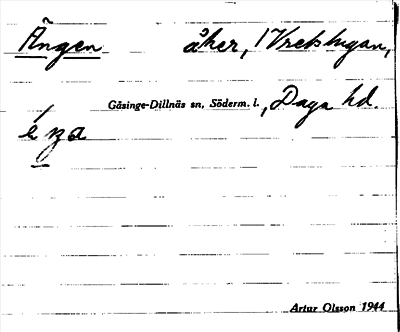 Ängen åker, Vretstugan,
Gåsinge-Dillnäs sn, Söderm. l., Daga hd.
Artur Olsson 1944